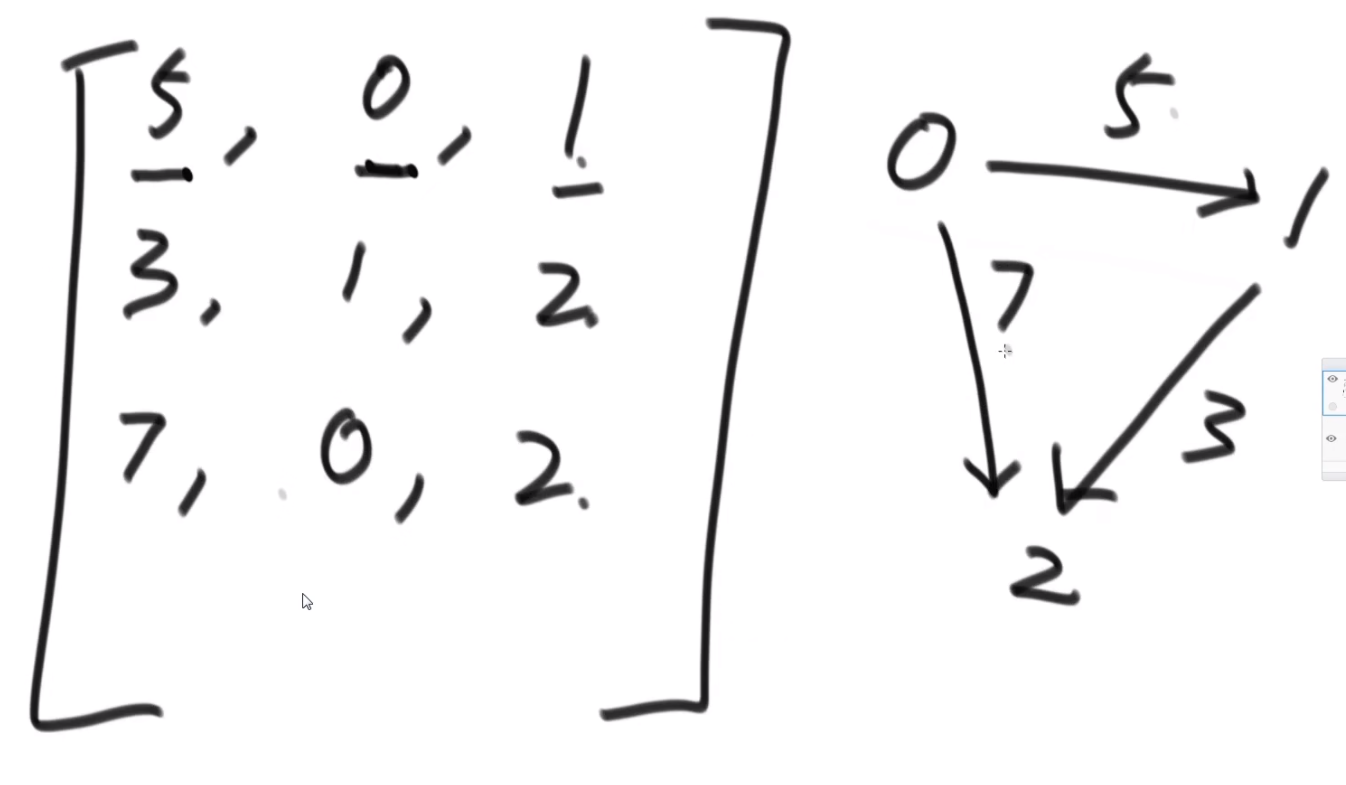 5, 0, 1
3, 1, 2
7, 0, 2
0
5
1
7
3
2